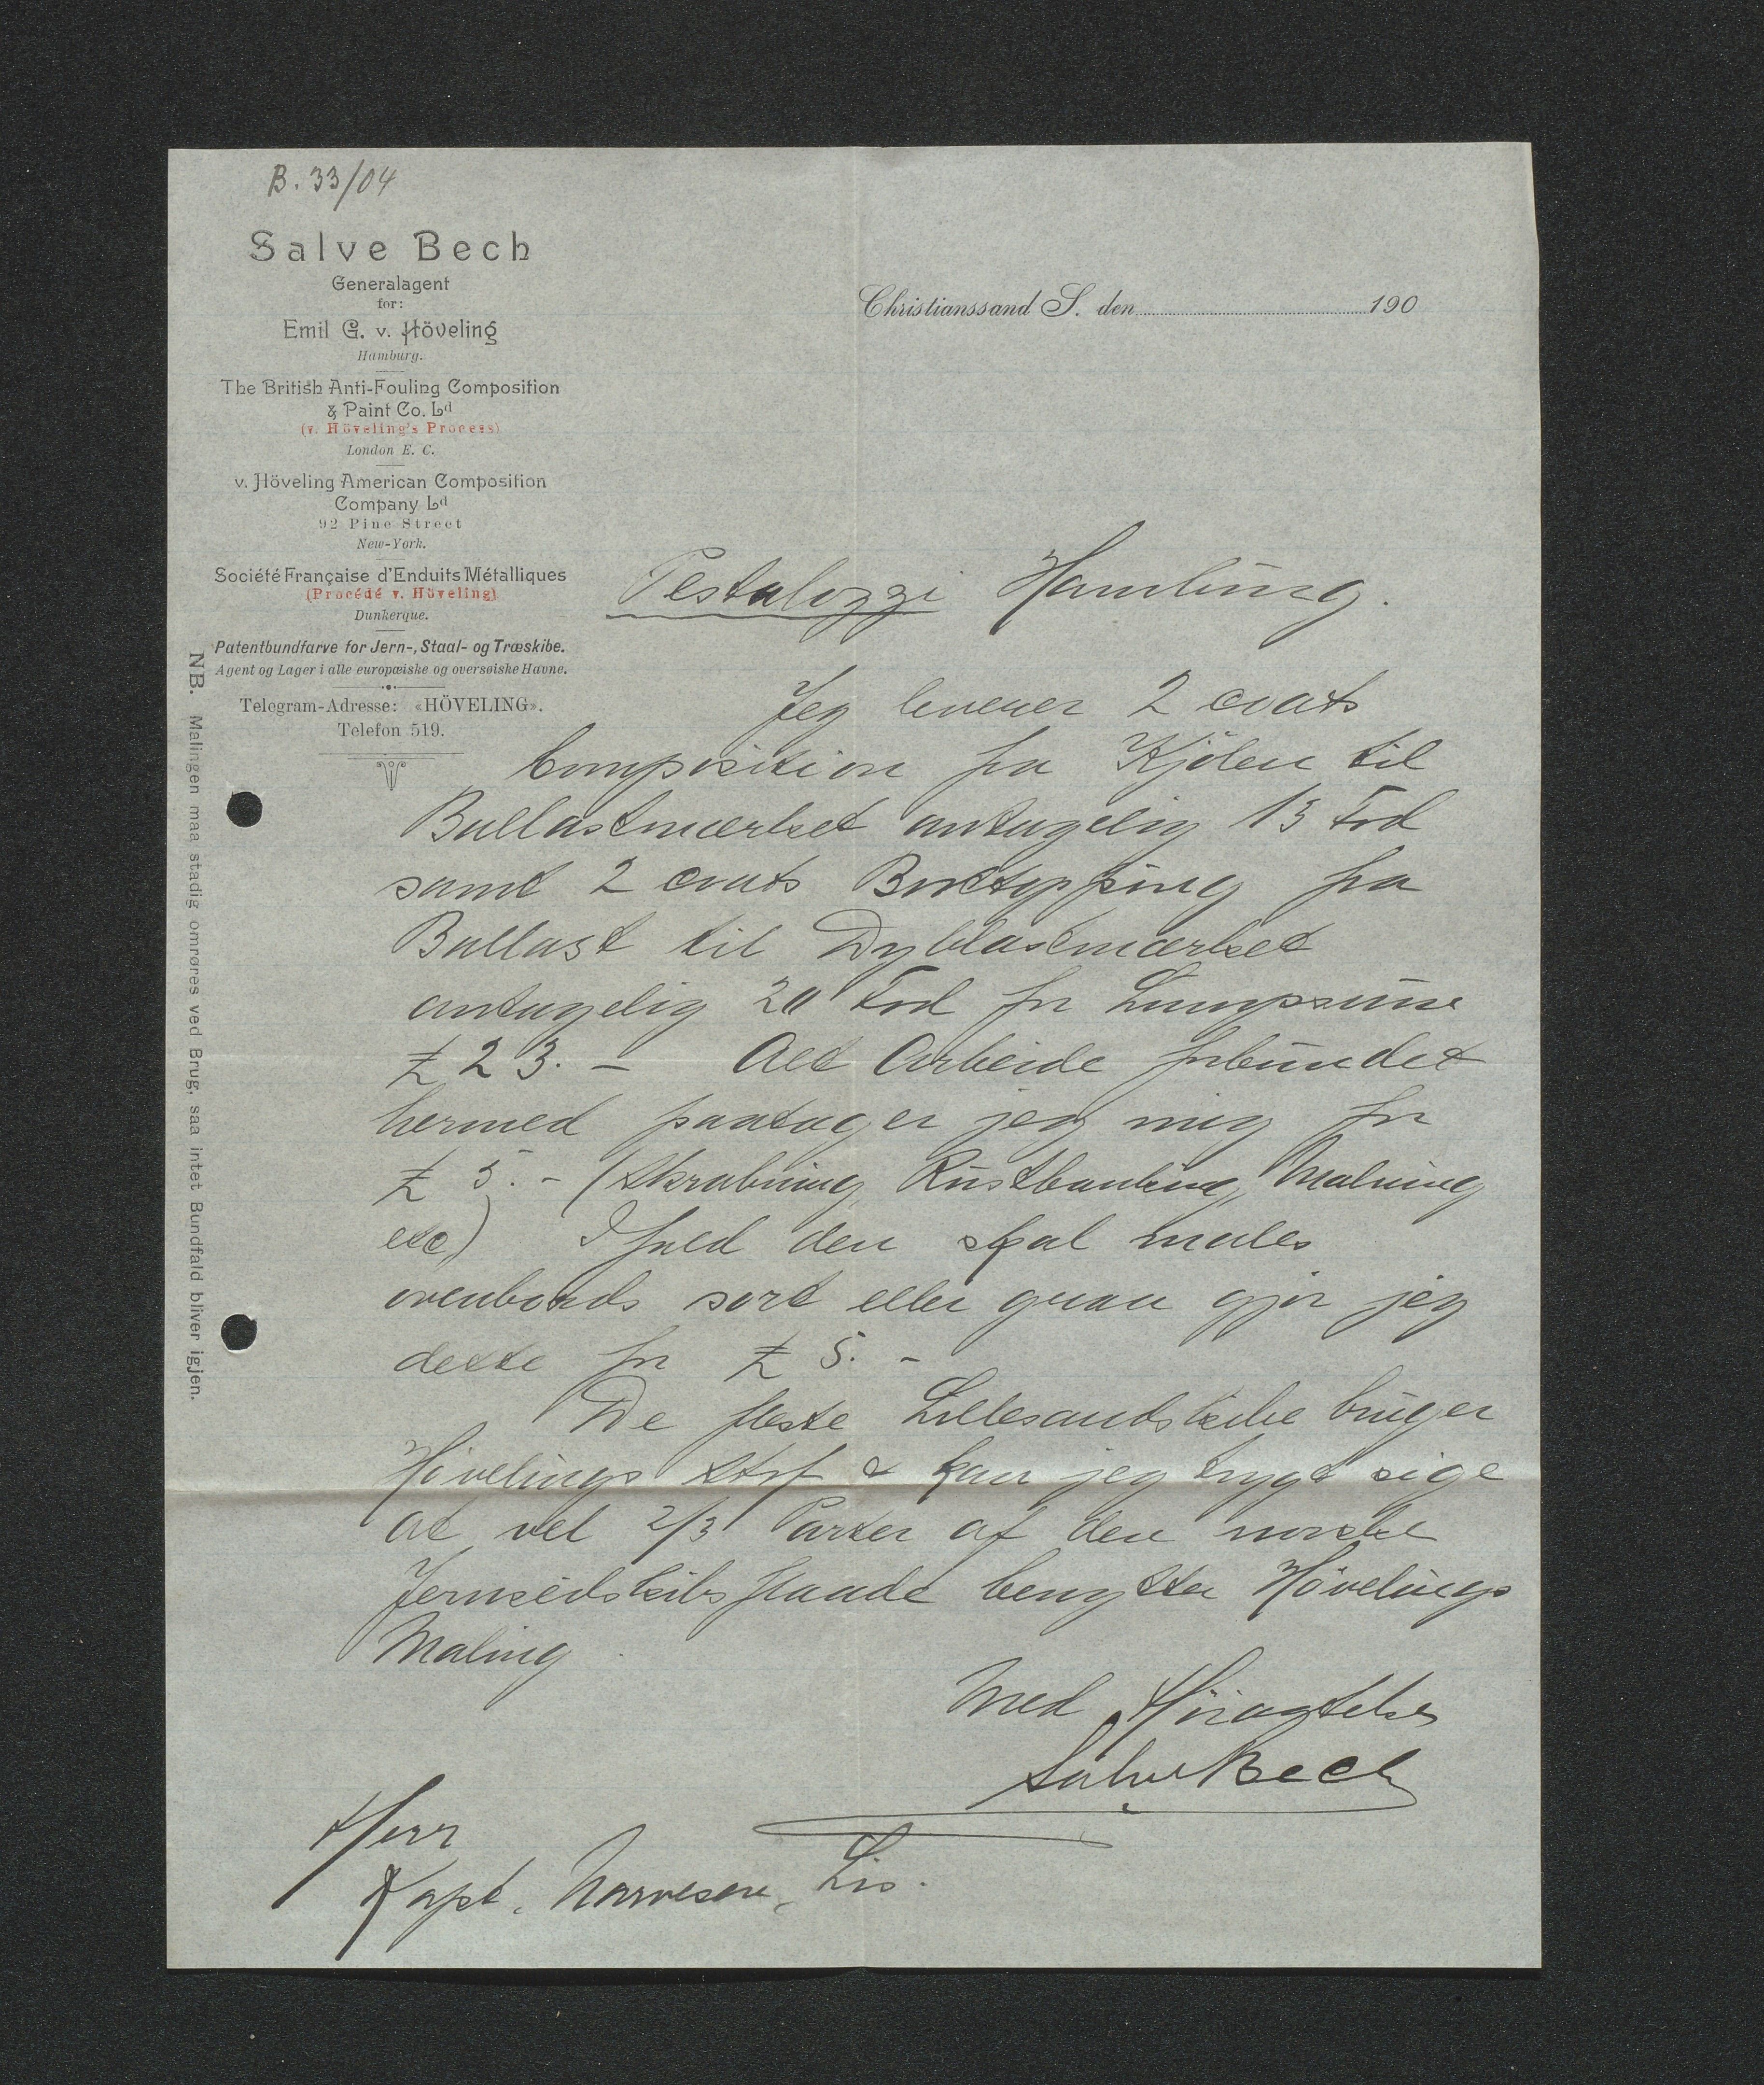 B. 33/04
Salve Bech
Generalagent
for:
Emil G. v. Höveling
Hamburg.
The British Anti-Fouling Composition
& Paint Co. Ld
(v. Höveling's Process)
London E. C.
v. Höveling American Composition
Company Ld
92 Pine Street
New-York.
Société Française d'Enduits Métalliques
(Procédé v. Höveling)
Dunkerque.
Patentbundfarve for Jern-, Staal- og Træskibe.
Agent og Lager i alle europæiske og oversøiske Havne.
Telegram-Adresse: «HÖVELING».
Telefon 519.
NB. Malingen maa stadig omrøres ved Brug, saa intet Bundfald bliver igjen.
Christianssand S. den 190
Pestalozzi Hamburg.
Jeg leverer 2 coats
Composition fra Kjølen til
Ballastmærket antagelig 13 Fod
samt 2 coats Boottopping fra
Ballast til Dyblastmærket
antagelig 20 Fod for Lumpsum
£ 23. – Alt Arbeide forbundet
hermed paatager jeg mig for
£ 5. – (Skrabning, Rustbanking, Malning
etc) Ifald den skal males
ovenbords sort eller graa gjør jeg
dette for £ 5. –
De fleste Lillesandsskibe bruger
Hövelings Stof & kan jeg trygt sige
at vel 2/3 Parter af den norske
Jernseilskibsflaade benytter Hövelings
Maling.
Med Høiagtelse
Salve Bech
Herr
Kapt. Narvesen,